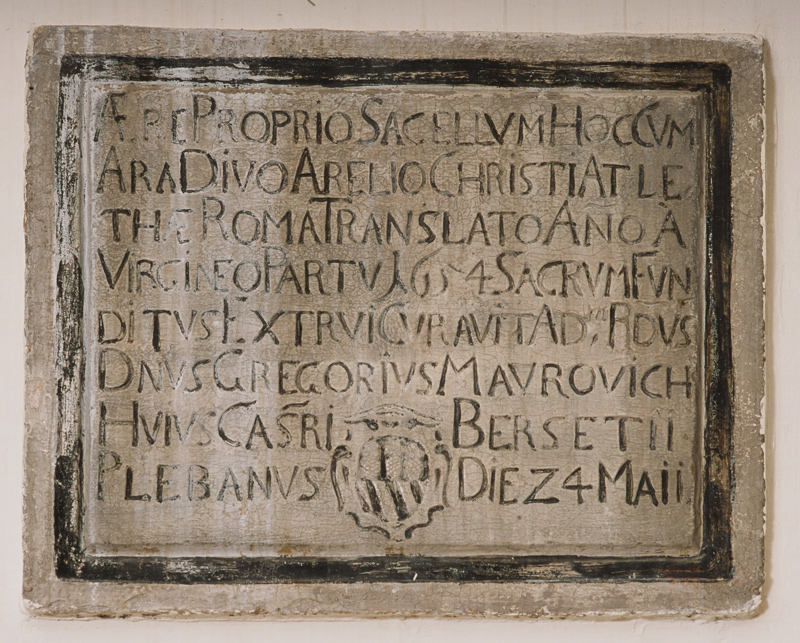 ÆRE PROPRIO SACELLVM HOC CVM
ARA DIVO ARELIO CHRISTI ATLE
THÆ ROMA TRANSLATO AÑO À
VIRGINEO PARTV 1654 SACRVM FVN
DITVS EXTRVI CVRAVIT AD RDVS
DNVS GREGORIVS MAVROVICH
HVIVS CASTRI BERSETII
PLEBANVS DIE Z4 MAII